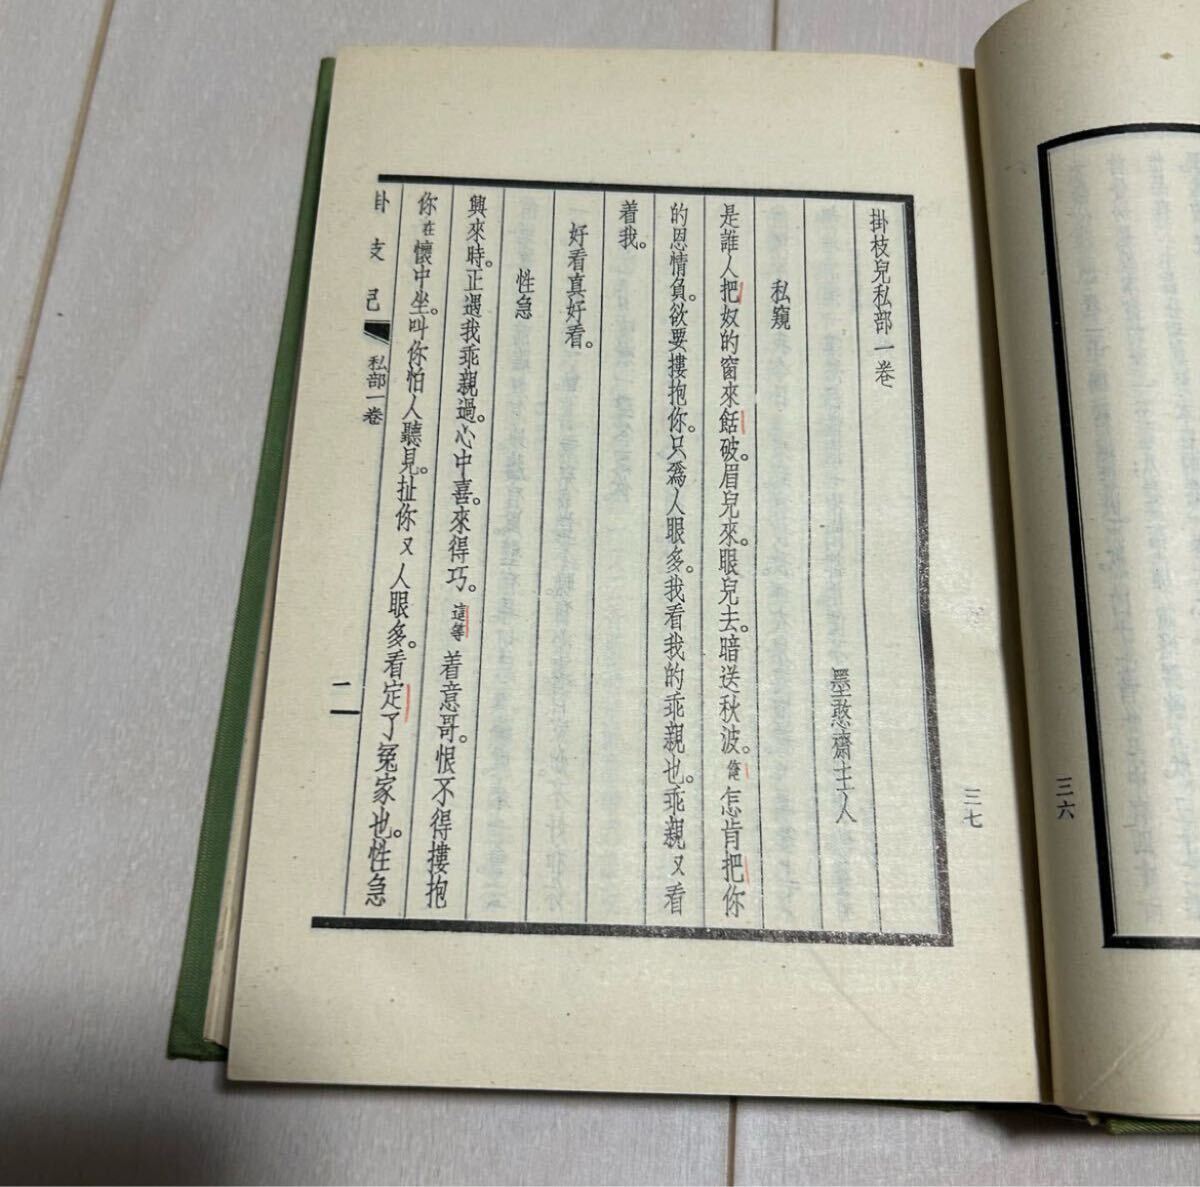 掛枝兒私部一卷
墨憨齋主人
私窺
是誰人把奴的窗來餂破。眉兒來。眼兒去。暗送秋波。俺怎肯把你
的恩情負。欲要摟抱你。只爲人眼多。我看我的乖親也。乖親又看
着我。
好看真好看。
性急
興來時。正遇我乖親過。心中喜。來得巧。這等着意哥。恨不得摟抱
你在懷中坐。叫你怕人聽見。扯你又人眼多。看定了冤家也。性急
掛支兒
私部一卷
二
三七
三六